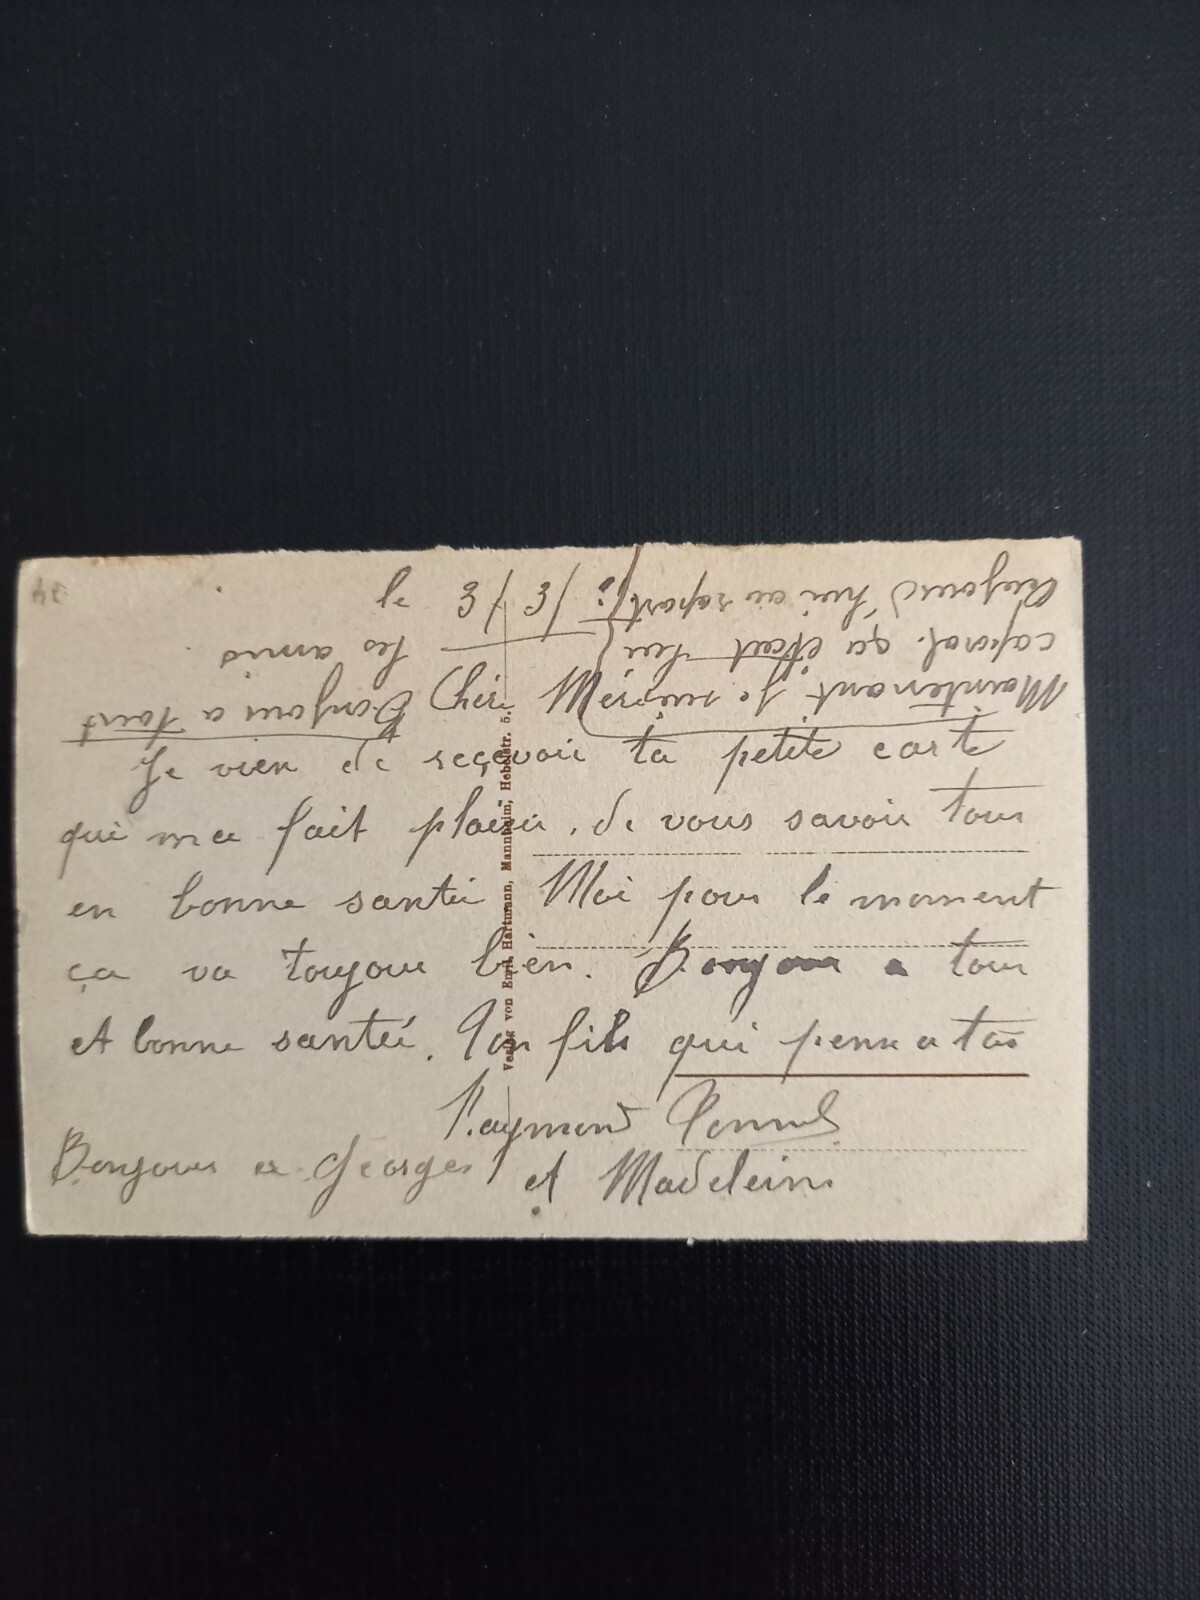 le 3/3/
Cher Mére
Je vien de reçevoir ta petite carte
qui ma fait plaisir, de vous savoir tous
en bonne santée Moi pour le moment
ça va toujour bien. Bonjour a tous
et bonne santée. Ton fils qui pense a toi
Raymond
Bonjour a Georges et Madeleine
Maintenant je suis
caporal. ça était lu
Aujourd'hui au raport
Bonjour a tout
les amis
Verlag von Emil Hartmann, Mannheim, Hebelstr. 5.
34